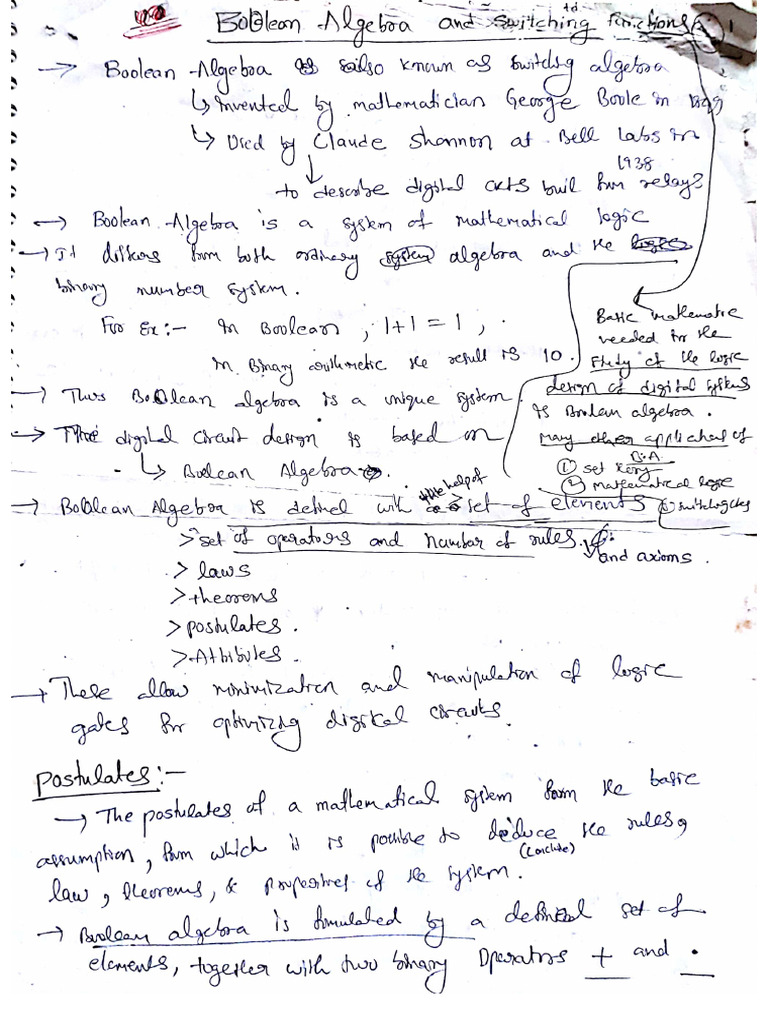 Boolean Algebra and Switching Functions
→ Boolean Algebra is also known as switchg algebra
↳ Invented by mathematician George Boole in
↳ Used by Claude Shannon at Bell Labs in
1938
to describe digital ckts buil from relays
→ Boolean Algebra is a system of mathematical logic
→ It differs from both ordinary system algebra and the logic
binary number system.
For Ex:- In Boolean, 1+1 = 1,
In Binary arithmetic the result is 10.
→ Thus Boolean algebra is a unique system
→ The digital circuit design is based on
↳ Boolean Algebra.
Basic mathematic
needed for the
study of the logic
design of digital systems
is Boolean algebra.
many other applications of
B.A.
① set theory
② mathematical logic
③
→ Boolean Algebra is defined with the help of set of elements
> set of operators and number of rules.
and axioms.
> laws
> theorems
> postulates.
> Attributes.
→ These allow minimization and manipulation of logic
gates for optimizing digital circuits.
Postulates:-
→ The postulates of a mathematical system form the basic
assumption, from which it is possible to deduce the rules,
(Conclude)
law, theorems, & properties of the system.
→ Boolean algebra is formulated by a defined set of
elements, together with two binary operators + and .